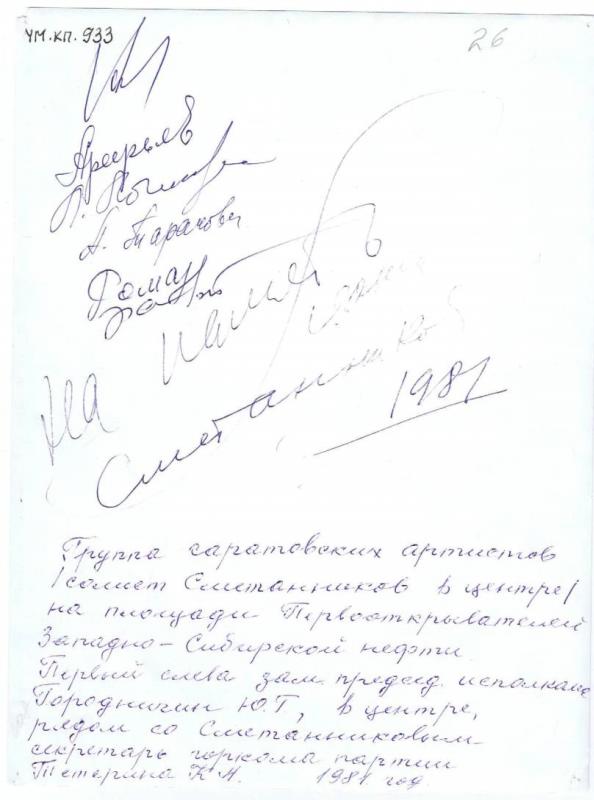 УМ.КП.933
26
А. Таракова
Роман
На память
Сметанников
1981
Группа саратовских артистов
/солист Сметанников в центре/
на площади Первооткрывателей
Западно-Сибирской нефти.
Первый слева зам. председ. исполкома
Городничин Ю.Г, в центре,
рядом со Сметанниковым-
секретарь горкома партии
Тетерина К.А. 1981 год.